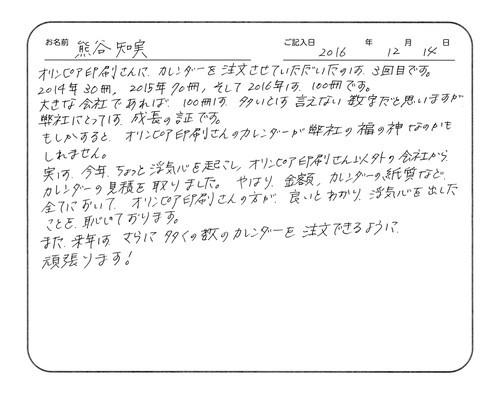 お名前 熊谷知実 ご記入日 2016 年 12 月 14 日
オリンピア印刷さんに、カレンダーを注文させていただいたのは、3回目です。
2014年30冊、2015年70冊、そして2016年は、100冊です。
大きな会社であれば、100冊は、多いとは言えない数字だと思いますが
弊社にとっては、成長の証です。
もしかすると、オリンピア印刷さんのカレンダーが弊社の福の神なのかも
しれません。
実は、今年、ちょっと浮気心を起こし、オリンピア印刷さん以外の会社から、
カレンダーの見積を取りました。やはり、金額、カレンダーの紙質など、
全てにおいて、オリンピア印刷さんの方が、良いとわかり、浮気心を出した
ことを、恥じております。
また、来年は、さらに多くの数のカレンダーを注文できるように、
頑張ります!